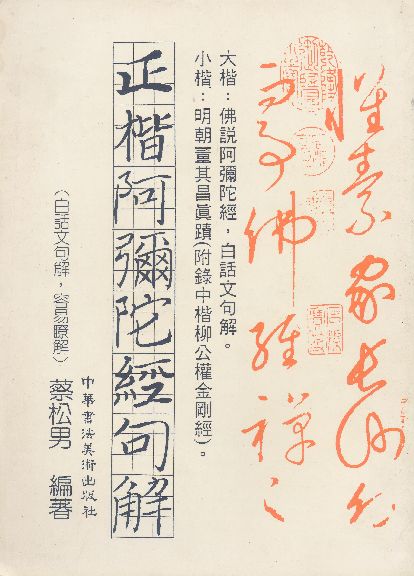 懷素家長沙幼
而事佛經禪之
大楷：佛説阿彌陀經，白話文句解。
小楷：明朝董其昌眞蹟(附錄中楷柳公權金剛經)。
正楷阿彌陀經句解
中華書法美術出版社
（白話文句解，容易瞭解）
蔡松男 編著